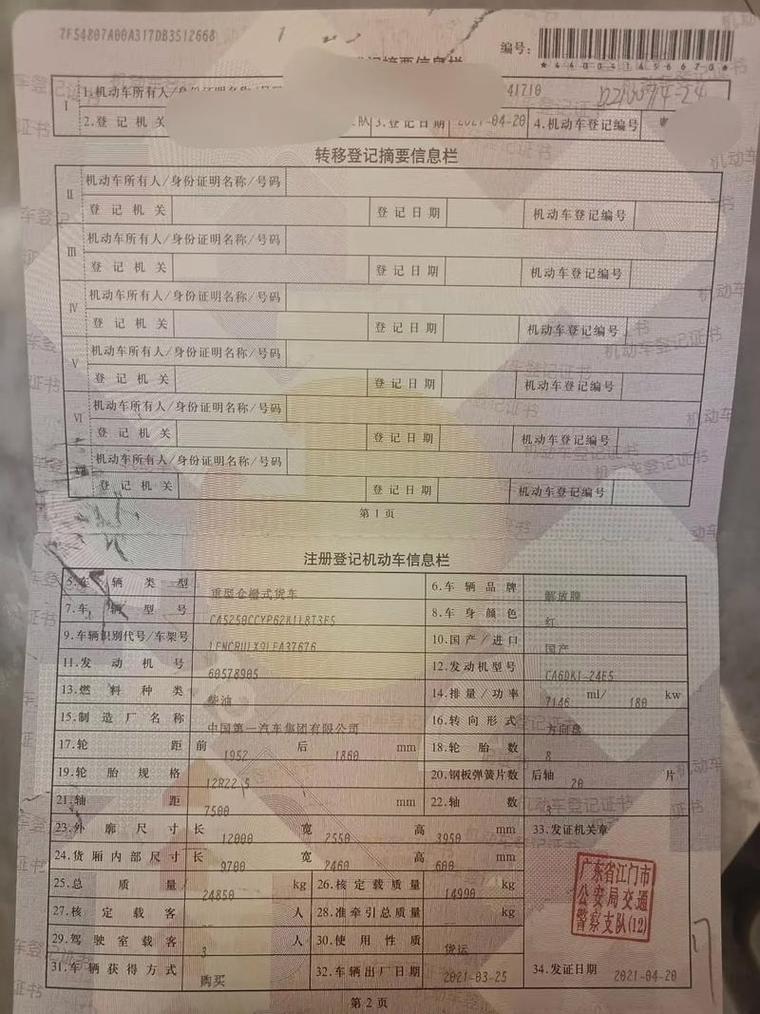 7F54807A00A317DB3512668
编号:
*440041456670*
登记摘要信息栏
I
1.机动车所有人/身份证明名称/号码 41710
2.登记机关 队 3.登记日期 2021-04-20 4.机动车登记编号
转移登记摘要信息栏
II 机动车所有人/身份证明名称/号码
登记机关 登记日期 机动车登记编号
III 机动车所有人/身份证明名称/号码
登记机关 登记日期 机动车登记编号
IV 机动车所有人/身份证明名称/号码
登记机关 登记日期 机动车登记编号
V 机动车所有人/身份证明名称/号码
登记机关 登记日期 机动车登记编号
VI 机动车所有人/身份证明名称/号码
登记机关 登记日期 机动车登记编号
VII 机动车所有人/身份证明名称/号码
登记机关 登记日期 机动车登记编号
第1页
注册登记机动车信息栏
5.车辆类型 重型仓栅式货车 6.车辆品牌 解放牌
7.车辆型号 CA5250CCYP62K1L8T3E5 8.车身颜色 红
9.车辆识别代号/车架号 10.国产/进口 国产
11.发动机号 60578905 12.发动机型号 CA6DK1-24E5
13.燃料种类 柴油 14.排量/功率 7146 ml/ 180 kw
15.制造厂名称 中国第一汽车集团有限公司 16.转向形式 方向盘
17.轮距 前 1952 后 1860 mm 18.轮胎数 8
19.轮胎规格 12R22.5 20.钢板弹簧片数 后轴 20 片
21.轴距 7500 mm 22.轴数 3
23.外廓尺寸 长 12000 宽 2550 高 3950 mm 33.发证机关章
24.货厢内部尺寸 长 9700 宽 2460 高 600 mm
25.总质量 24850 kg 26.核定载质量 14990 kg
27.核定载客 -- 人 28.准牵引总质量 -- kg
29.驾驶室载客 3 人 30.使用性质 货运
31.车辆获得方式 购买 32.车辆出厂日期 2021-03-25 34.发证日期 2021-04-20
广东省江门市
公安局交通
警察支队(12)
第2页